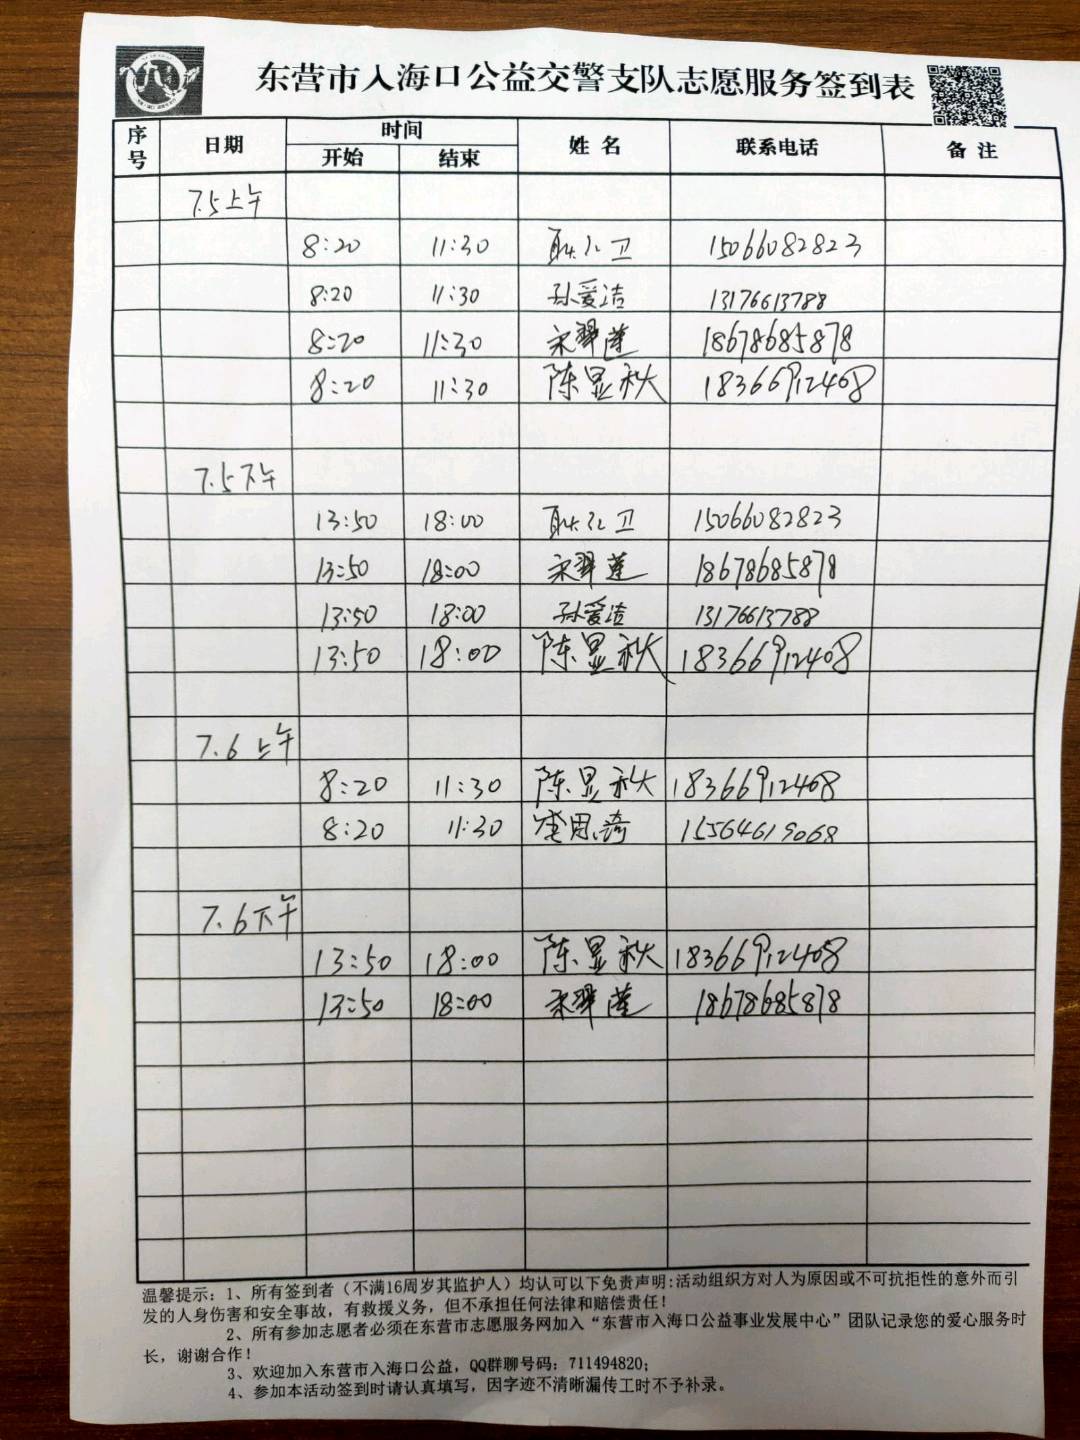 东营市入海口公益交警支队志愿服务签到表
序号 日期 时间 姓 名 联系电话 备 注
开始 结束
7.5上午
8:20 11:30 耿 卫 15066082823
8:20 11:30 孙爱洁 13176613788
8:20 11:30 宋翠莲 18678685878
8:20 11:30 陈显秋 18366912408
7.5下午
13:50 18:00 耿 卫 15066082823
13:50 18:00 宋翠莲 18678685878
13:50 18:00 孙爱洁 13176613788
13:50 18:00 陈显秋 18366912408
7.6 上午
8:20 11:30 陈显秋 18366912408
8:20 11:30 思琦 15564619068
7.6下午
13:50 18:00 陈显秋 18366912408
13:50 18:00 宋翠莲 18678685878
温馨提示：1、所有签到者（不满16周岁其监护人）均认可以下免责声明:活动组织方对人为原因或不可抗拒性的意外而引
发的人身伤害和安全事故，有救援义务，但不承担任何法律和赔偿责任！
2、所有参加志愿者必须在东营市志愿服务网加入“东营市入海口公益事业发展中心”团队记录您的爱心服务时
长，谢谢合作！
3、欢迎加入东营市入海口公益，QQ群聊号码：711494820；
4、参加本活动签到时请认真填写，因字迹不清晰漏传工时不予补录。